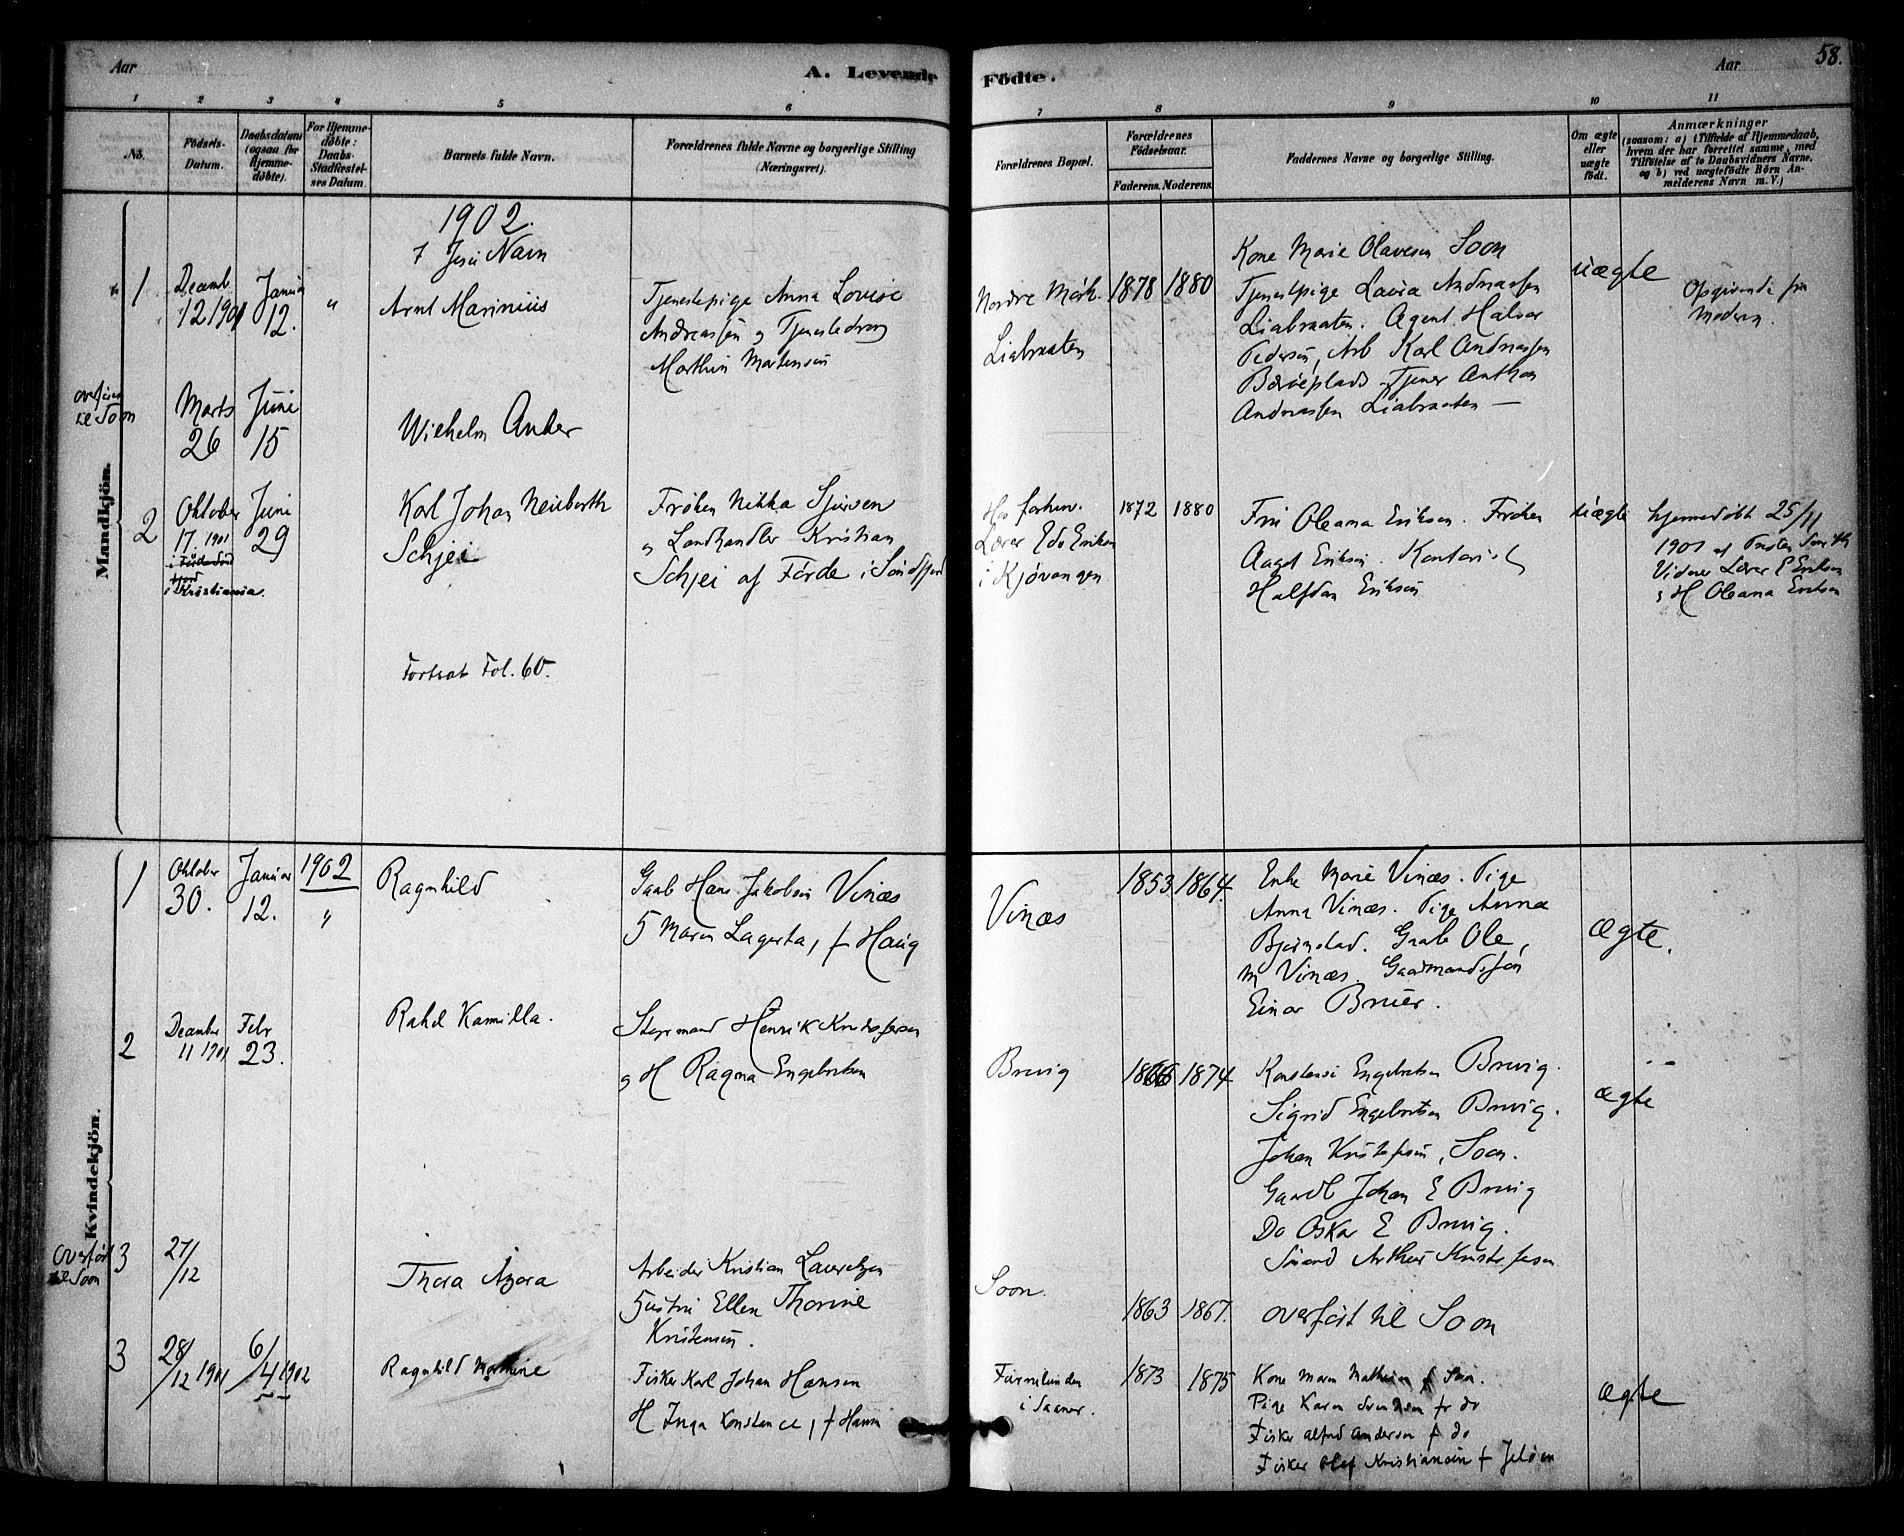 58.
Aar
A. Levende
Födte.
Aar
1 2 3 4 5 6 7 8 9 10 11
No.
Födsels-
Datum.
Daabsdatum
(ogsaa for
Hjemme-
døbte).
For Hjemme-
døbte:
Daabs-
Stadfæstel-
ses Datum.
Barnets fulde Navn.
Forældrenes fulde Navne og borgerlige Stilling
(Næringsvei).
Forældrenes Bopæl.
Forældrenes
Födselsaar.
Faderens. Moderens.
Faddernes Navne og borgerlige Stilling.
Om ægte
eller
uægte
født.
Anmærkninger
(saasom: a) i Tilfælde af Hjemmedaab,
hvem der har forrettet samme, med
Tilføielse af to Daabsvidners Navne,
og b) ved uægtefödte Börn An-
melderens Navn m. V.)
Mandkjön.
1902.
Jesu Navn
1
Decemb
12 1901
Januar
12.
"
Arnt Marinius
Tjenestepige Anna Lovise
Andreassen og Tjenestedreng
Marthin Martensen
Nordre Mörk.
Liabraaten
1878 1880
Kone Marie Olavesen Soon
Tjenestpige Lavra Andreassen
Liabraaten. Agent Halvor
Pedersen, Arb Karl Andreassen
Tjener Anthon
Andreassen Liabraaten —
uægte
Opgivende fra
Moderen.
til Soon
Marts
26
Juni
15
Wilhelm Anker
2
Oktober
17 1901
i Kristiania.
Juni
29
Karl Johan Neuberth
Schjei
Frøken Nikka Sjursen
og Landhandler Kristian
Schjei af Förde i Söndfjord
Hos forhenv.
Lærer Edv Eriksen
i Kjøvangen
1872 1880
Fru Oleana Eriksen. Frøken
Aagot Eriksen. Kontorist
Halfdan Eriksen
uægte
hjemmedöbt 25/11
1901 af
Vidner Lærer E Eriksen
& H Oleana Eriksen
Fortsat Fol. 60.
Kvindekjön.
1
Oktober
30.
Januar
12.
1902
"
Ragnhild
Gaab Hans Jakobsen Vinæs
Maren Lagerta, f Haug
Vinæs
1853 1864.
Enke Marie Vinæs. Pige
Anna Vinæs. Pige Anna
Bjørnstad. Gaab Ole,
M Vinæs. Gaardmandssön
Einar Bruer.
ægte.
2
December
11 1901
Febr
23.
Rakel Kamilla.
Styrmand Henrik Kristofersen
og H Ragna Engebretsen
Brevig
1866 1874
Konstanse Engebretsen Brevig.
Sigrid Engebretsen Brevig.
Johan Kristofersen, Soon.
Gaardb Johan E Brevig
Do Oskar E Brevig.
Sömand Arthur Kristofersen
ægte
Overført
til Soon
3
27/12
Thora Azora
Arbeider Kristian Lauretzen
Hustru Ellen Thorine
Kristensen.
Soon.
1863 1867.
overført til Soon
3
28/12 1901
6/4 1902
Ragnhild
Fisker Karl Johan Hansen
H Inga Konstance, f Hansen
i Saaner.
1873 1875
Kone Maren Mathisen f Son.
Pige Karen Svendsen fr do
Fisker Alfred Andersen f do
Fisker Olaf Kristiansen f Jelöen
ægte